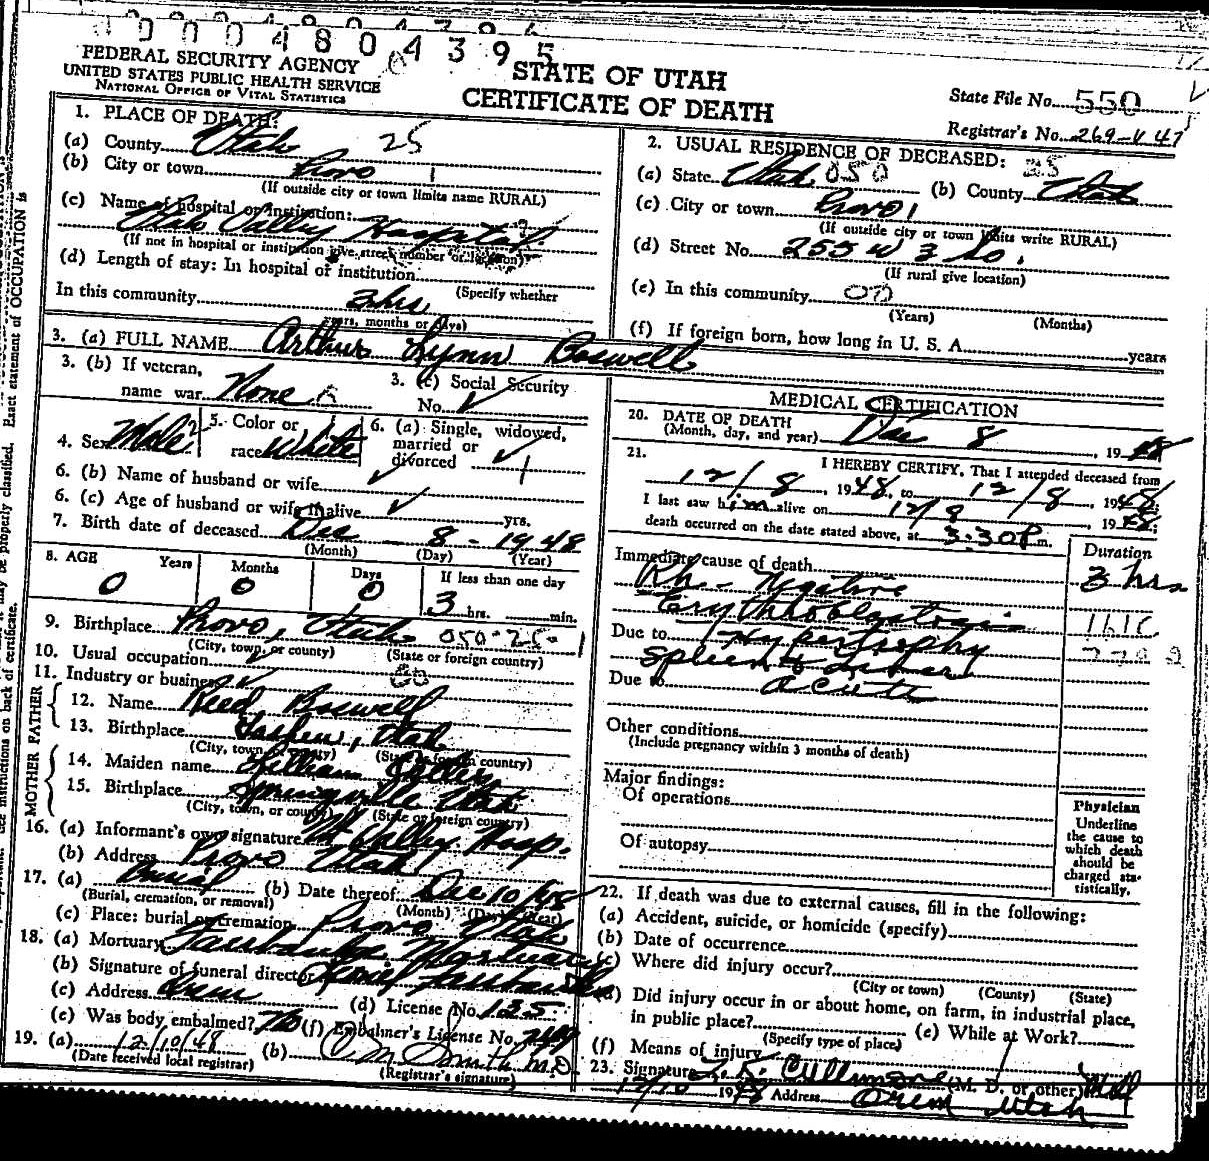 0004804395
FEDERAL SECURITY AGENCY
UNITED STATES PUBLIC HEALTH SERVICE
NATIONAL OFFICE OF VITAL STATISTICS
STATE OF UTAH
CERTIFICATE OF DEATH
State File No. 550
Registrar's No. 269-V 47
1. PLACE OF DEATH:
(a) County Utah 25
(b) City or town Provo 1
(If outside city or town limits name RURAL)
(c) Name of hospital or institution:
Utah Valley Hospital
(If not in hospital or institution give street number or location)
(d) Length of stay: In hospital or institution
(Specify whether
In this community 3 hrs
years, months or days)
2. USUAL RESIDENCE OF DECEASED: 25
(a) State Utah 050 (b) County Utah
(c) City or town Provo 1
(If outside city or town limits write RURAL)
(d) Street No. 255 W 3 So.
(If rural give location)
(e) In this community 00
(Years) (Months)
(f) If foreign born, how long in U. S. A. years
3. (a) FULL NAME Arthur Lynn Boswell
3. (b) If veteran,
name war None
3. (c) Social Security
No. ✓
4. Sex Male
5. Color or
race White
6. (a) Single, widowed,
married or
divorced ✓ 1
6. (b) Name of husband or wife ✓
6. (c) Age of husband or wife if alive ✓ yrs.
7. Birth date of deceased Dec - 8 - 1948
(Month) (Day) (Year)
8. AGE Years Months Days If less than one day
0 0 0 3 hrs. min.
9. Birthplace Provo, Utah 050-25-1
(City, town, or county) (State or foreign country)
10. Usual occupation ✓
11. Industry or business ✓
FATHER
12. Name Reed Boswell
13. Birthplace Goshen, Utah
(City, town, or county) (State or foreign country)
MOTHER
14. Maiden name Lillian
15. Birthplace Springville Utah
(City, town, or county) (State or foreign country)
16. (a) Informant's own signature Ut Valley Hosp.
(b) Address Provo Utah
17. (a) Burial (b) Date thereof Dec 10/48
(Burial, cremation, or removal) (Month) (Day) (Year)
(c) Place: burial or cremation Provo Utah
18. (a) Mortuary Fairbanks Mortuary
(b) Signature of funeral director Fairbanks
(c) Address Orem (d) License No. 135
(e) Was body embalmed? No (f) Embalmer's License No.
19. (a) 12/10/48 (b) O M Smith M.D.
(Date received local registrar) (Registrar's signature)
MEDICAL CERTIFICATION
20. DATE OF DEATH
(Month, day, and year) Dec 8, 1948
21. I HEREBY CERTIFY, That I attended deceased from
12/8, 1948, to 12/8, 1948;
I last saw him alive on 12/8, 1948;
death occurred on the date stated above, at 3:30 P m.
Immediate cause of death Duration
Rh - Negative 3 hrs
Erythroblastosis 161C
Due to Hypertrophy
Spleen & Liver
Due to acute
Other conditions
(Include pregnancy within 3 months of death)
Major findings:
Of operations
Of autopsy
Physician
Underline
the cause to
which death
should be
charged sta-
tistically.
22. If death was due to external causes, fill in the following:
(a) Accident, suicide, or homicide (specify)
(b) Date of occurrence
(c) Where did injury occur?
(City or town) (County) (State)
(d) Did injury occur in or about home, on farm, in industrial place,
in public place? (e) While at Work?
(Specify type of place)
(f) Means of injury
23. Signature (M. D. or other) MD
12/10 1948 Address Orem Utah
Exact statement of OCCUPATION is
may be properly classified.
See instructions on back of certificate.